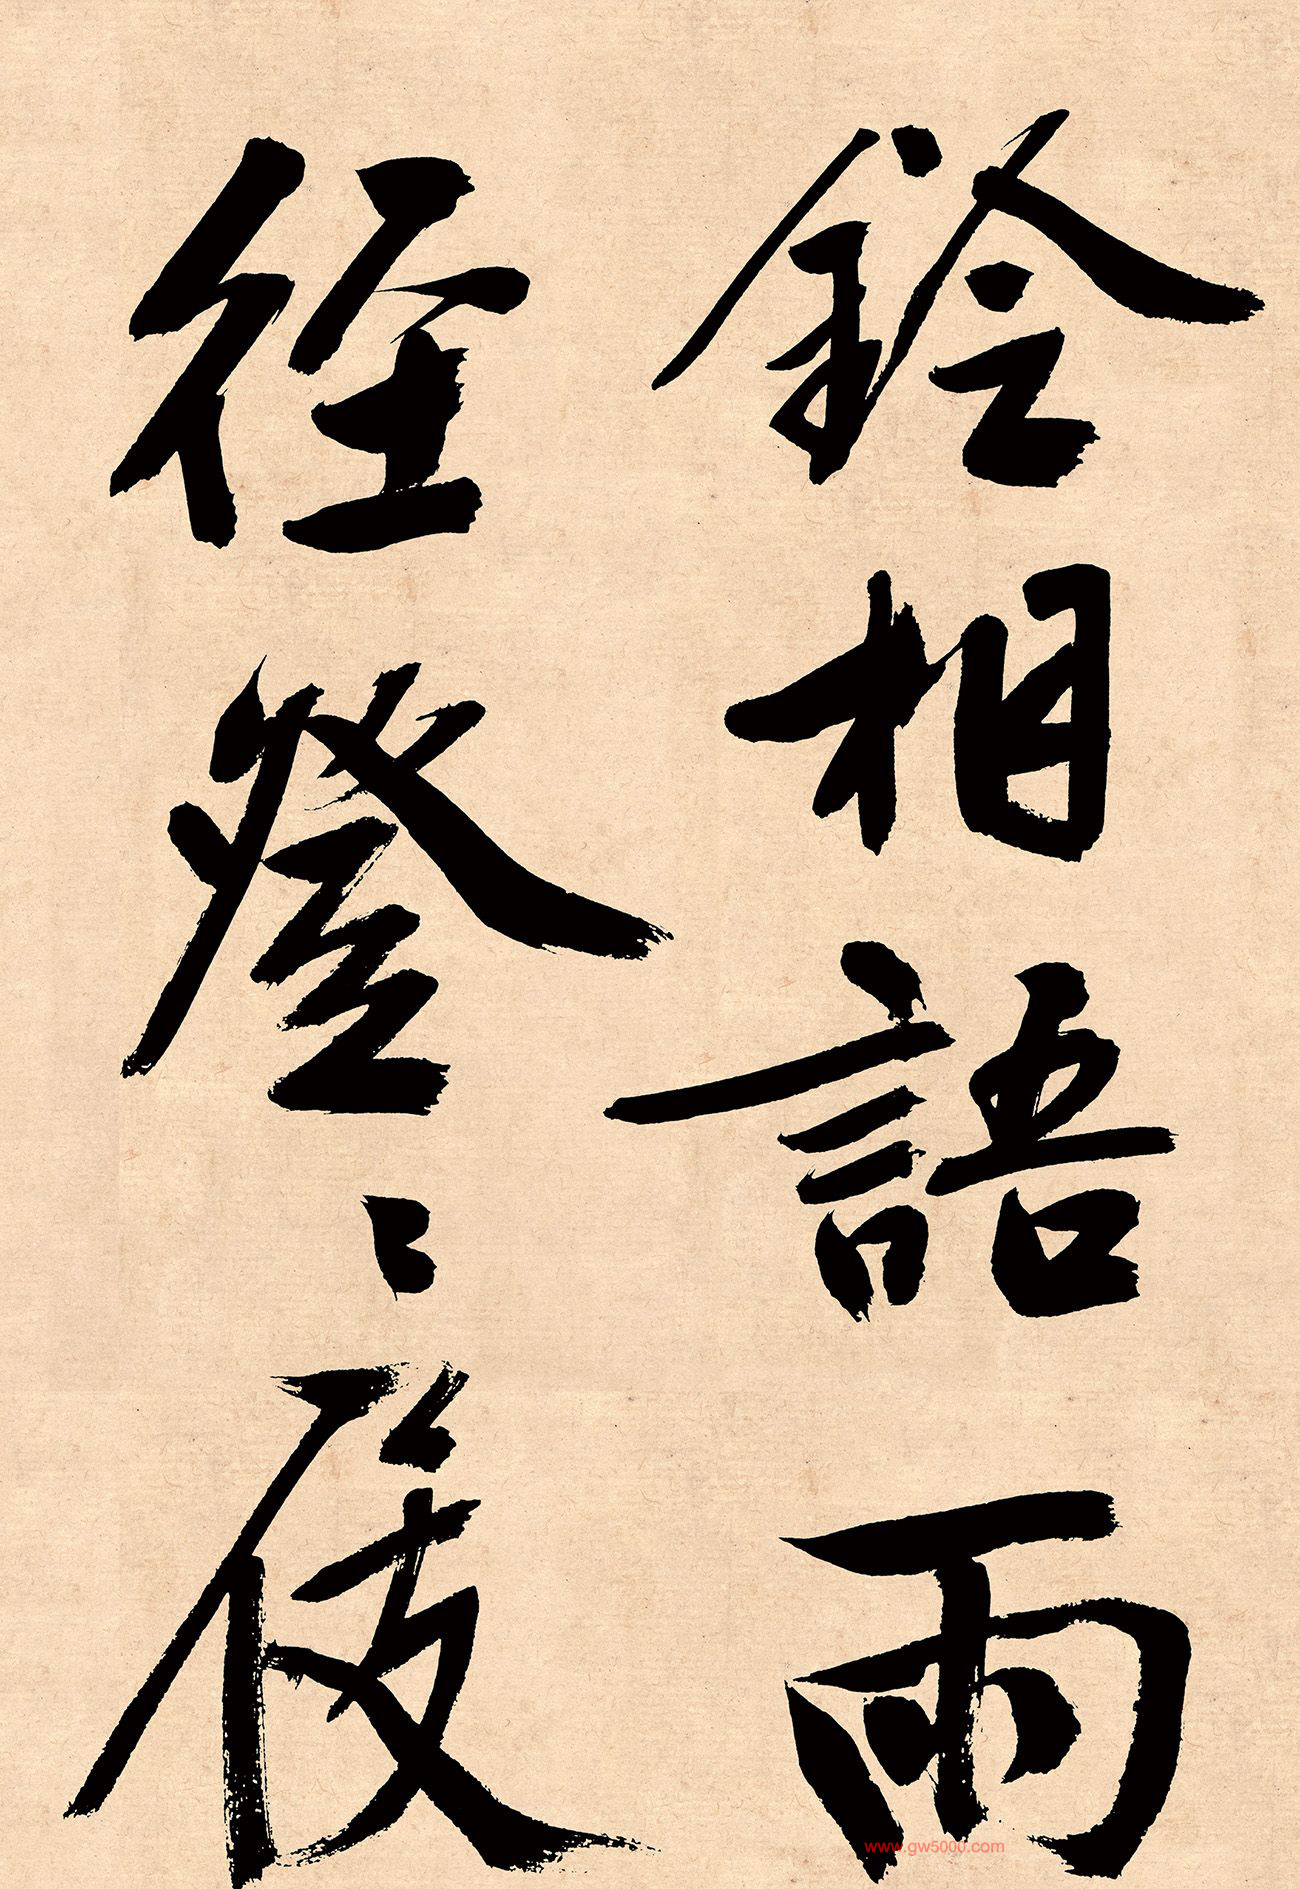 鈴相語雨
径登〻屐
www.gw5000.com